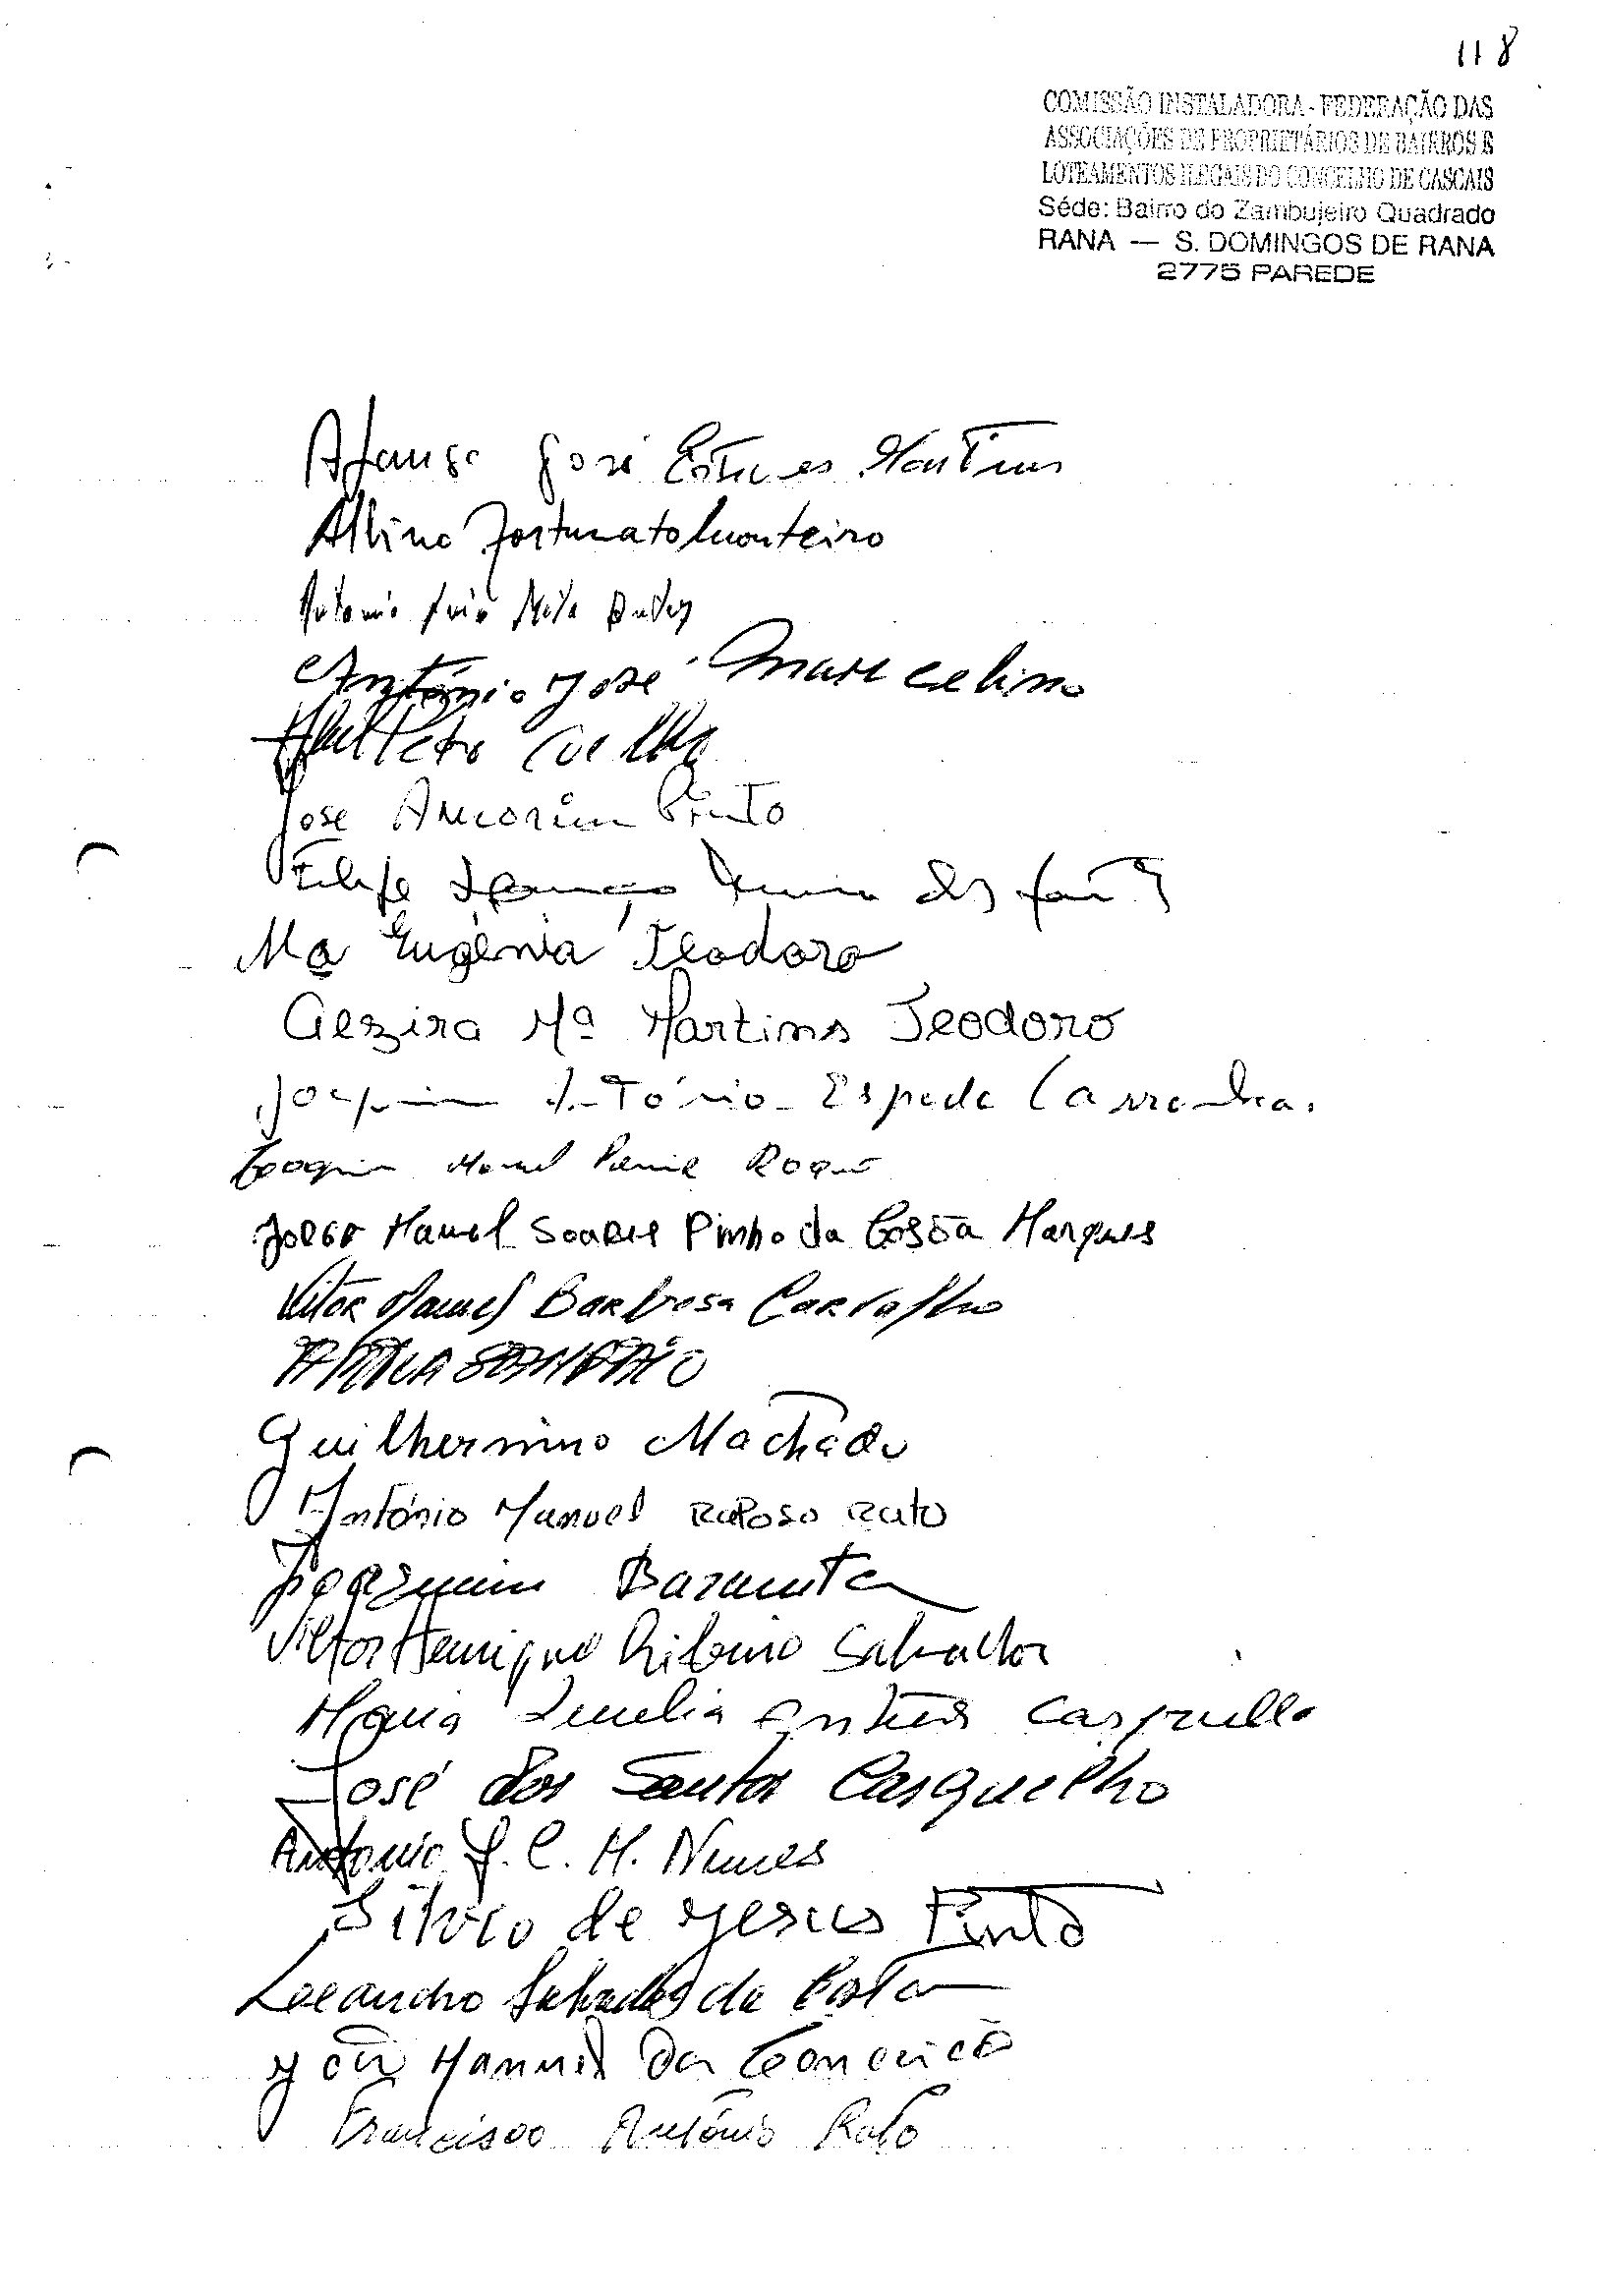 118
COMISSÃO INSTALADORA - FEDERAÇÃO DAS
ASSOCIAÇÕES DE PROPRIETÁRIOS DE BAIRROS E
LOTEAMENTOS ILEGAIS DO CONCELHO DE CASCAIS
Séde: Bairro do Zambujeiro Quadrado
RANA — S. DOMINGOS DE RANA
2775 PAREDE
Afonso José Esteves Martins
Albino Fortunato Monteiro
Antonio Luis Mota
António José Marcelino
Abel Peto Coelho
José Amorim Pinto
Filipe dos
Mª Eugénia Teodoro
Alzira Mª Martins Teodoro
Joaquim António Espada Carranhas
Joaquim Manuel Roque
Jorge Manuel Soares Pinho da Costa Marques
Vitor Manuel Barbosa Carvalho
SAMPAIO
Guilhermino Machado
António Manuel Raposo Rato
Joaquim Barauta
Victor Henrique Ribeiro Salvador
Maria Antunes Casquilho
José dos Santos Casquelho
Antonio J. C. M. Nunes
Silvio de Jesus Pinto
Leeandro Salvador da Costa
José Mannuel Da Conceicão
Francisco António Rato